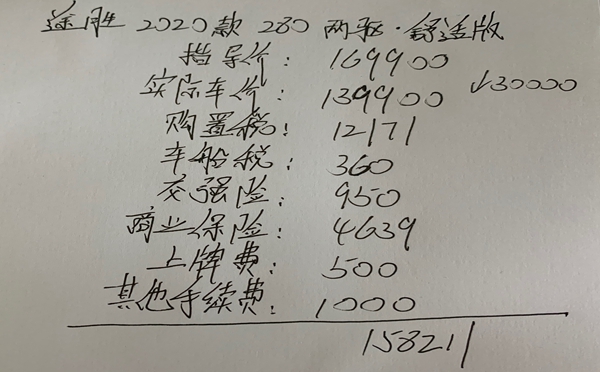 途胜 2020款 280 两驱·舒适版
指导价: 169900
实际车价: 139900 ↓30000
购置税: 12171
车船税: 360
交强险: 950
商业保险: 4639
上牌费: 500
其他手续费: 1000
158211